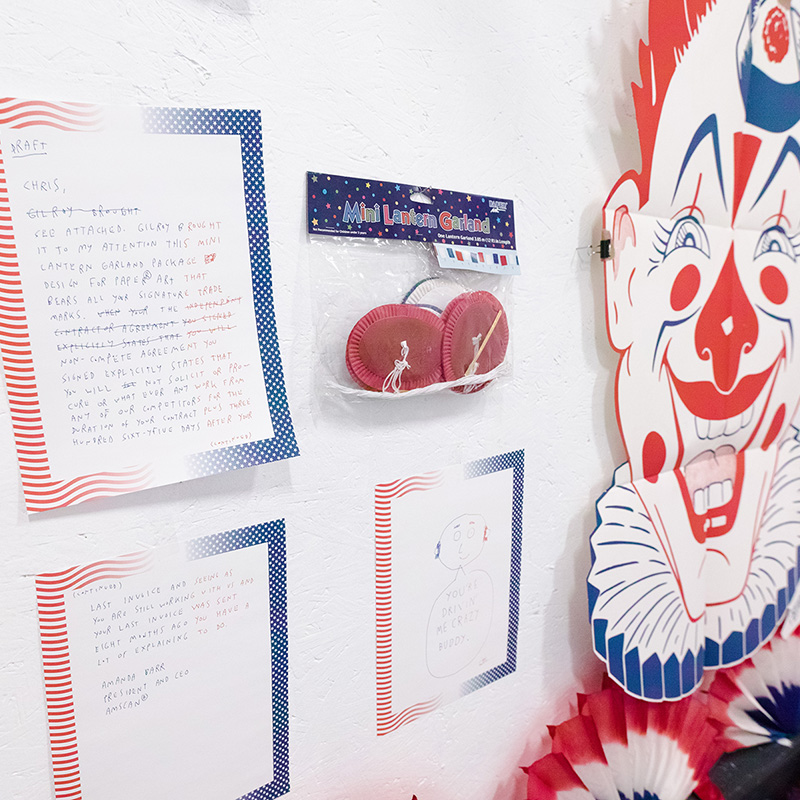 DRAFT
CHRIS,
GILROY BROUGHT
SEE ATTACHED. GILROY BROUGHT
IT TO MY ATTENTION THIS MINI
LANTERN GARLAND PACKAGE
DESIGN FOR PAPER® ART THAT
BEARS ALL YOUR SIGNATURE TRADE
MARKS. WHEN YOUR THE INDEPENDENT
CONTRACTOR AGREEMENT YOU SIGNED
EXPLICITLY STATES THAT YOU WILL
NON-COMPETE AGREEMENT YOU
SIGNED EXPLICITLY STATES THAT
YOU WILL NOT SOLICIT OR PRO-
CURE OR WHAT EVER ANY WORK FROM
ANY OF OUR COMPETITORS FOR THE
DURATION OF YOUR CONTRACT PLUS THREE
HUNDRED SIXTY-FIVE DAYS AFTER YOUR
(CONTINUED)
Mini Lantern Garland
One Lantern Garland 3.65 m (12 ft) in Length
(CONTINUED)
LAST INVOICE AND SEEING AS
YOU ARE STILL WORKING WITH US AND
YOUR LAST INVOICE WAS SENT
EIGHT MONTHS AGO YOU HAVE A
LOT OF EXPLAINING TO DO.
AMANDA BARR
PRESIDENT AND CEO
AMSCAN®
YOU'RE
DRIVIN
ME CRAZY
BUDDY.